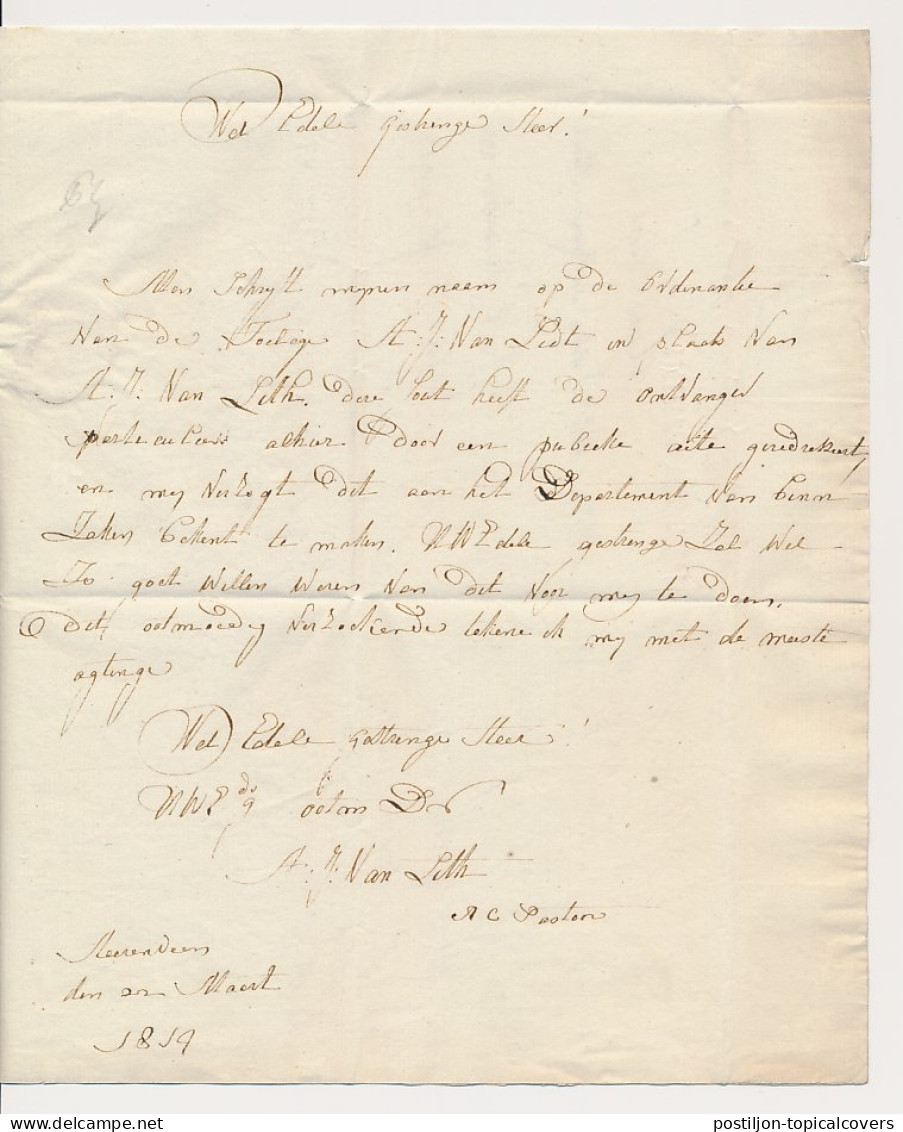 Wel Edele Gestrenge Heer!
Men Schryft mynen naam op de Ordinantie
Van de Toelage A: J: Van Lidt in plaats Van
A: J: Van Lith. deze fout heeft de ontvanger
alhier door een publieke acte
en my Verzogt dit aan het Departement Van binn
Zaken bekent te maken. UWEdele gestrenge Zal Wel
Zo goet Willen Wezen Van dit Voor my te doen.
Dit ootmoedig Verzoekende tekene ik my met de meeste
agtinge
Wel Edele Gestrenge Heer!
UWEd g ootm Dr
A: J: Van Lith
R C Pastoor
Heerenveen
den 22 Maart
1819
postiljon-topicalcovers